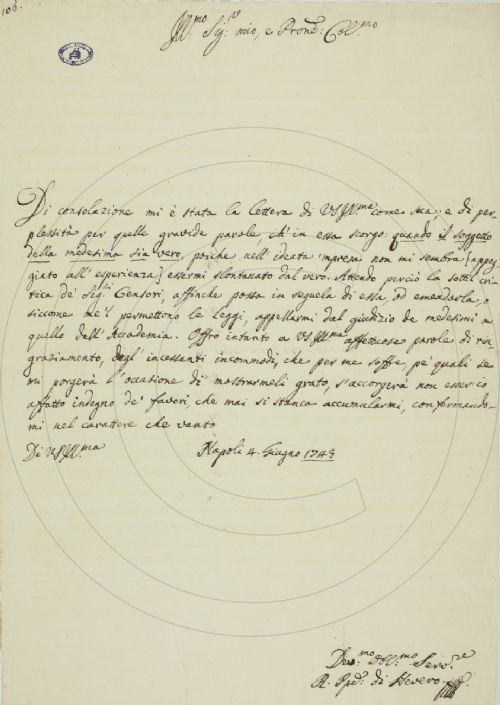 106.
Ill.mo Sig.re mio, e Pron.e Col.mo
Di consolazione mi è stata la lettera di VS Ill.ma come sua; e di per-
plessità per quelle gravide parole, ch'in essa scorgo: quando il soggetto
della medesima sia vero, poiche nell'ideata impresa non mi sembra [appog
giato all'esperienza] essermi slontanato dal vero. Attendo perciò la sottil cri
tica de' Sig.li Censori, affinche possa in sequela di essa, od emendarla, o
siccome me'l permettono le Leggi, appellarmi dal giudizio de medesimi a
quello dell'Accademia. Offro intanto a VS Ill.ma affettuose parole di rin
graziamento, degl'incessanti incommodi, che per me soffre, pe' quali se
mi porgerà l'occasione di mostrarmeli grato, s'accorgerà non esser io
affatto indegno de' favori, che mai si stanca accumularmi, confermando-
mi nel carattere che vanto
Di VS Ill.ma Napoli 4. Giugno 1743
Dev.mo Obl.mo Serv.re
R. Ppe: di S.Severo